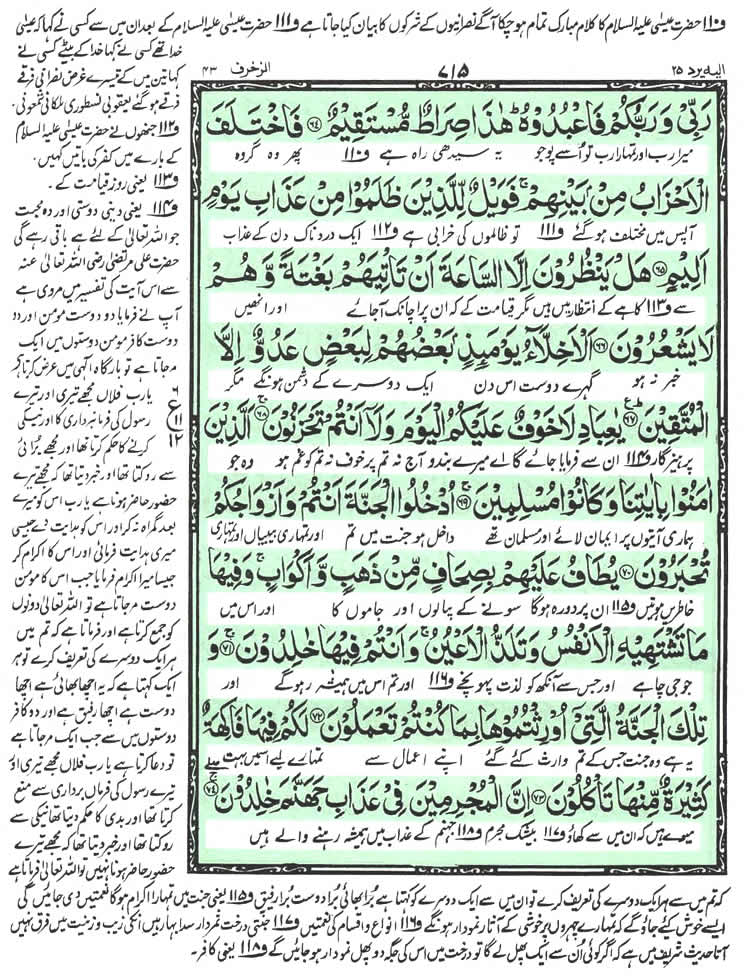 و۱۱۰ حضرت عیسٰی علیہ السلام کا کلام مبارک تمام ہو چکا آگے نصرانیوں کے شرکوں کا بیان کیا جاتا ہے و۱۱۱ حضرت عیسٰی علیہ السلام کے بعد ان میں سے کسی نے کہا کہ عیسٰی
الیہ یرد ۲۵
۷۱۵
الزخرف ۴۳
رَبِّىْ وَرَبُّكُمْ فَاعْبُدُوْهُ ؕ هٰذَا صِرَاطٌ مُّسْتَقِيْمٌ ۝۶۴ فَاخْتَلَفَ
میرا رب اور تمہارا رب تو اُسے پوجو یہ سیدھی راہ ہے و۱۱۰ پھر وہ گروہ
الْاَحْزَابُ مِنْۢ بَيْنِهِمْ ۚ فَوَيْلٌ لِّلَّذِيْنَ ظَلَمُوْا مِنْ عَذَابِ يَوْمٍ
آپس میں مختلف ہو گئے و۱۱۱ تو ظالموں کی خرابی ہے و۱۱۲ ایک درد ناک دن کے عذاب
اَلِيْمٍ ۝۶۵ هَلْ يَنْظُرُوْنَ اِلَّا السَّاعَةَ اَنْ تَاْتِيَهُمْ بَغْتَةً وَّهُمْ
سے و۱۱۳ کاہے کے انتظار میں ہیں مگر قیامت کے کہ ان پر اچانک آجائے اور انھیں
لَا يَشْعُرُوْنَ ۝۶۶ اَلْاَخِلَّآءُ يَوْمَئِذٍۭ بَعْضُهُمْ لِبَعْضٍ عَدُوٌّ اِلَّا
خبر نہ ہو گہرے دوست اس دن ایک دوسرے کے دشمن ہونگے مگر
الْمُتَّقِيْنَ ۝۶۷ يٰعِبَادِ لَا خَوْفٌ عَلَيْكُمُ الْيَوْمَ وَلَاۤ اَنْتُمْ تَحْزَنُوْنَ ۝۶۸ اَلَّذِيْنَ
پرہیزگار و۱۱۴ ان سے فرمایا جائے گا اے میرے بندو آج نہ تم پر خوف نہ تم کو غم ہو وہ جو
اٰمَنُوْا بِاٰيٰتِنَا وَكَانُوْا مُسْلِمِيْنَ ۝۶۹ اُدْخُلُوا الْجَنَّةَ اَنْتُمْ وَاَزْوَاجُكُمْ
ہماری آیتوں پر ایمان لائے اور مسلمان تھے داخل ہو جنت میں تم اور تمہاری بیبیاں اور تمہاری
تُحْبَرُوْنَ ۝۷۰ يُطَافُ عَلَيْهِمْ بِصِحَافٍ مِّنْ ذَهَبٍ وَّاَكْوَابٍ ۚ وَفِيْهَا
خاطریں ہوتیں و۱۱۵ ان پر دورہ ہوگا سونے کے پیالوں اور جاموں کا اور اس میں
مَا تَشْتَهِيْهِ الْاَنْفُسُ وَتَلَذُّ الْاَعْيُنُ ۚ وَاَنْتُمْ فِيْهَا خٰلِدُوْنَ ۝۷۱ وَ
جو جی چاہے اور جس سے آنکھ کو لذت پہونچے و۱۱۶ اور تم اس میں ہمیشہ رہو گے اور
تِلْكَ الْجَنَّةُ الَّتِىْۤ اُوْرِثْتُمُوْهَا بِمَا كُنْتُمْ تَعْمَلُوْنَ ۝۷۲ لَكُمْ فِيْهَا فَاكِهَةٌ
یہ ہے وہ جنت جس کے تم وارث کئے گئے اپنے اعمال سے تمہارے لیے اسمیں بہت میوے
كَثِيْرَةٌ مِّنْهَا تَاْكُلُوْنَ ۝۷۳ اِنَّ الْمُجْرِمِيْنَ فِىْ عَذَابِ جَهَنَّمَ خٰلِدُوْنَ ۝۷۴
میوے ہیں کہ ان میں سے کھاؤ و۱۱۷ بیشک مجرم و۱۱۸ جہنم کے عذاب میں ہمیشہ رہنے والے ہیں
خدا تھے کسی نے کہا خدا کے بیٹے کسی نے
کہا تین میں کے تیسرے غرض نصرانی فرقے
فرقے ہو گئے یعقوبی نسطوری ملکانی شمعونی۔
و۱۱۲ جنھوں نے حضرت عیسٰی علیہ السلام
کے بارے میں کفر کی باتیں کہیں۔
و۱۱۳ یعنی روزِ قیامت کے۔
و۱۱۴ یعنی دینی دوستی اور وہ محبت
جو اللہ تعالٰی کے لئے ہے باقی رہے گی
حضرت علی مرتضٰی رضی اللہ تعالٰی عنہ
سے اس آیت کی تفسیر میں مروی ہے
آپ نے فرمایا دو دوست مومن اور دو
دوست کافر مومن دوستوں میں ایک
مرجاتا ہے تو بارگاہ الٰہی میں عرض کرتا ہے
یارب فلاں مجھے تیری اور تیرے
رسول کی فرمانبرداری کا اور نیکی
کرنے کا حکم کرتا تھا اور مجھے برائی
۶
ع
۱۱
۱۲
سے روکتا تھا اور خبر دیتا تھا کہ مجھے تیرے
حضور حاضر ہونا ہے یارب اس کو میرے
بعد گمراہ نہ کر اور اس کو ہدایت دے جیسی
میری ہدایت فرمائی اور اس کا اکرام کر
جیسا میرا اکرام فرمایا جب اس کا مومن
دوست مرجاتا ہے تو اللہ تعالٰی دونوں
کو جمع کرتا ہے اور فرماتا ہے کہ تم میں
ہر ایک دوسرے کی تعریف کرے تو ہر
ایک کہتا ہے کہ یہ اچھا بھائی ہے اچھا
دوست ہے اچھا رفیق ہے اور دو کافر
دوستوں میں سے جب ایک مرجاتا ہے
تو دعا کرتا ہے یارب فلاں مجھے تیری اور
تیرے رسول کی فرماں برداری سے منع
کرتا تھا اور بدی کا حکم دیتا تھا نیکی سے
روکتا تھا اور خبر دیتا تھا کہ مجھے تیرے
حضور حاضر ہونا نہیں تو اللہ تعالٰی فرماتا ہے
کہ تم میں سے ہر ایک دوسرے کی تعریف کرے تو ان میں سے ایک دوسرے کو کہتا ہے بُرا بھائی بُرا دوست بُرا رفیق و۱۱۵ یعنی جنت میں تمہارا اکرام ہوگا نعمتیں دی جائیں گی
ایسے خوش کئے جاؤ گے کہ تمہارے چہروں پر خوشی کے آثار نمودار ہونگے و۱۱۶ انواع و اقسام کی نعمتیں و۱۱۷ جنتی درخت ثمردار سدا بہار ہیں انکی زیب و زینت میں فرق نہیں
آتا حدیث شریف میں ہے کہ اگر کوئی اُن سے ایک پھل لے گا تو درخت میں اس کی جگہ دو پھل نمودار ہو جائیں گے و۱۱۸ یعنی کافر۔